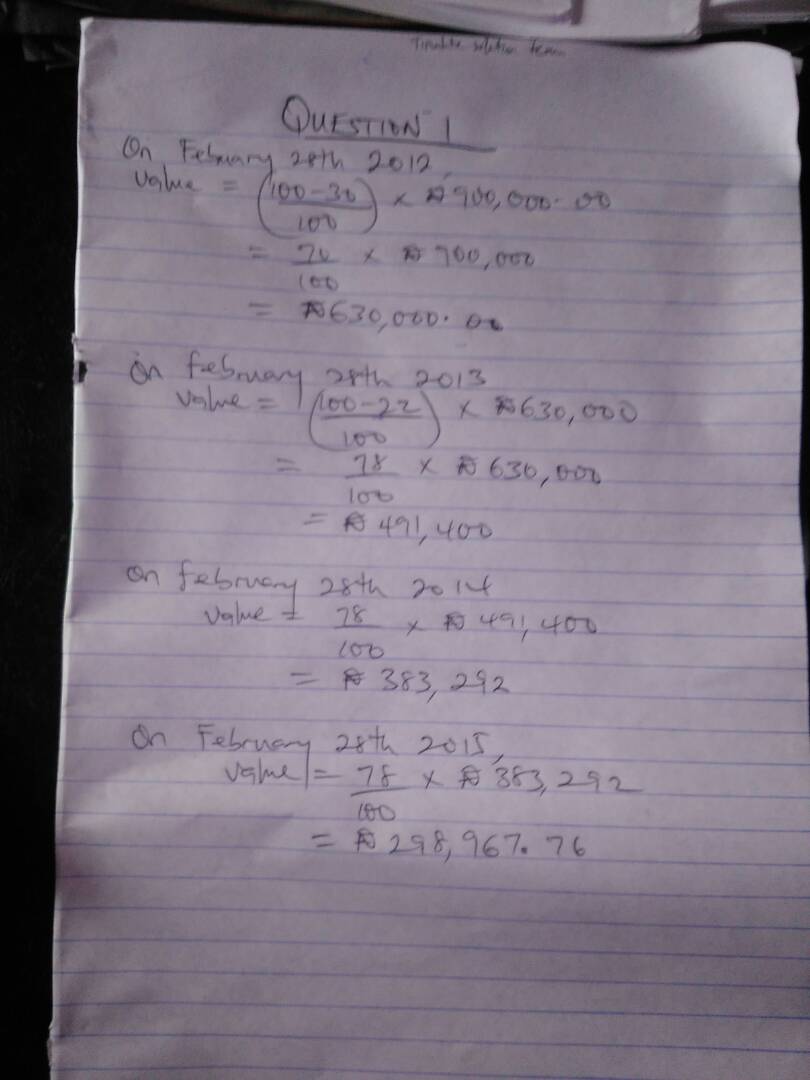 solution team
QUESTION 1
On February 28th 2012,
Value = (100-30/100) × ₦900,000.00
= 70/100 × ₦900,000
= ₦630,000.00
On february 28th 2013
Value = (100-22/100) × ₦630,000
= 78/100 × ₦630,000
= ₦491,400
On february 28th 2014
Value = 78/100 × ₦491,400
= ₦383,292
On February 28th 2015,
Value = 78/100 × ₦383,292
= ₦298,967.76